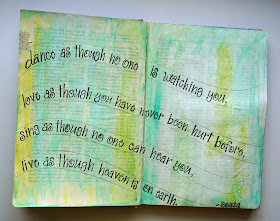 dance as though no one is watching you,
love as though you have never been hurt before,
sing as though no one can hear you,
live as though heaven is on earth.